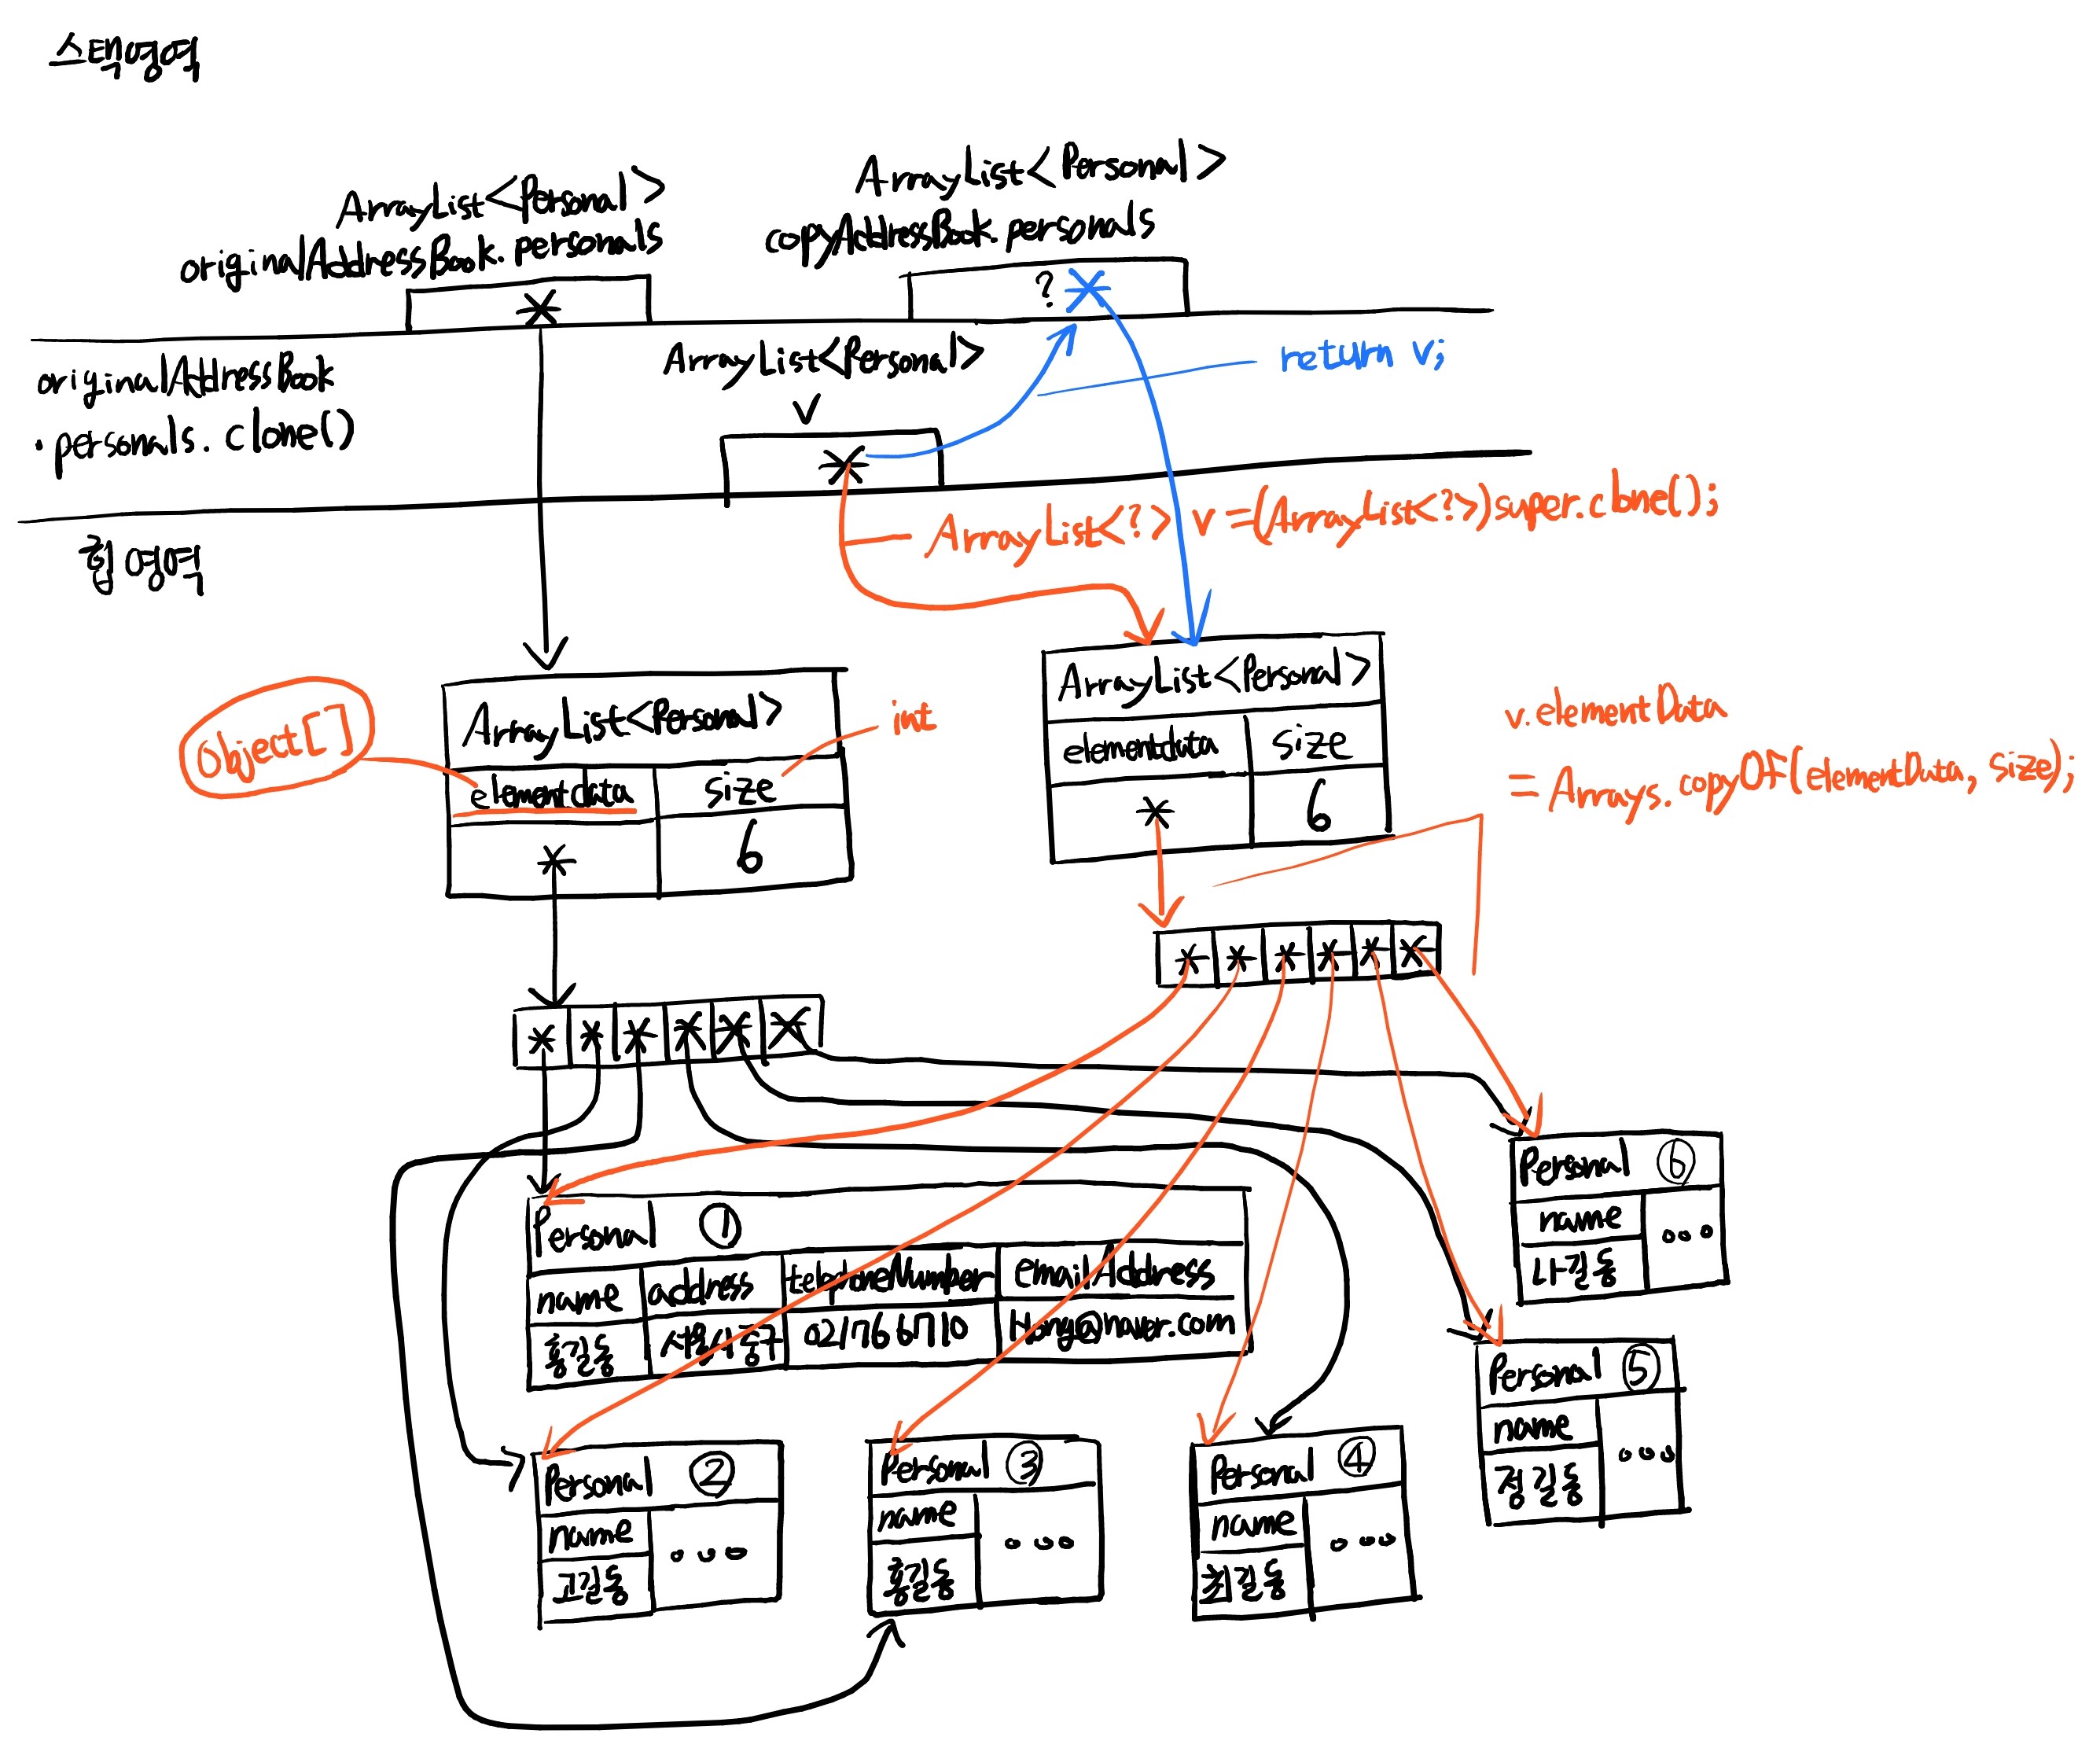 스택영역
ArrayList<Personal>
originalAddressBook.personals
*
ArrayList<Personal>
copyAddressBook.personals
? *
originalAddressBook
.personals.clone()
ArrayList<Personal>
v
*
return v;
힙영역
ArrayList<?> v=(ArrayList<?>)super.clone();
Object[]
ArrayList<Personal>
elementdata size
* 6
int
ArrayList<Personal>
elementdata size
* 6
v.elementData
= Arrays.copyOf(elementData, size);
* * * * * *
* * * * * *
Personal ①
name address telephoneNumber emailAddress
홍길동 서울시 중구 021766710 Hong@naver.com
Personal ②
name ...
고길동
Personal ③
name ...
홍길동
Personal ④
name ...
최길동
Personal ⑤
name ...
정길동
Personal ⑥
name ...
나길동